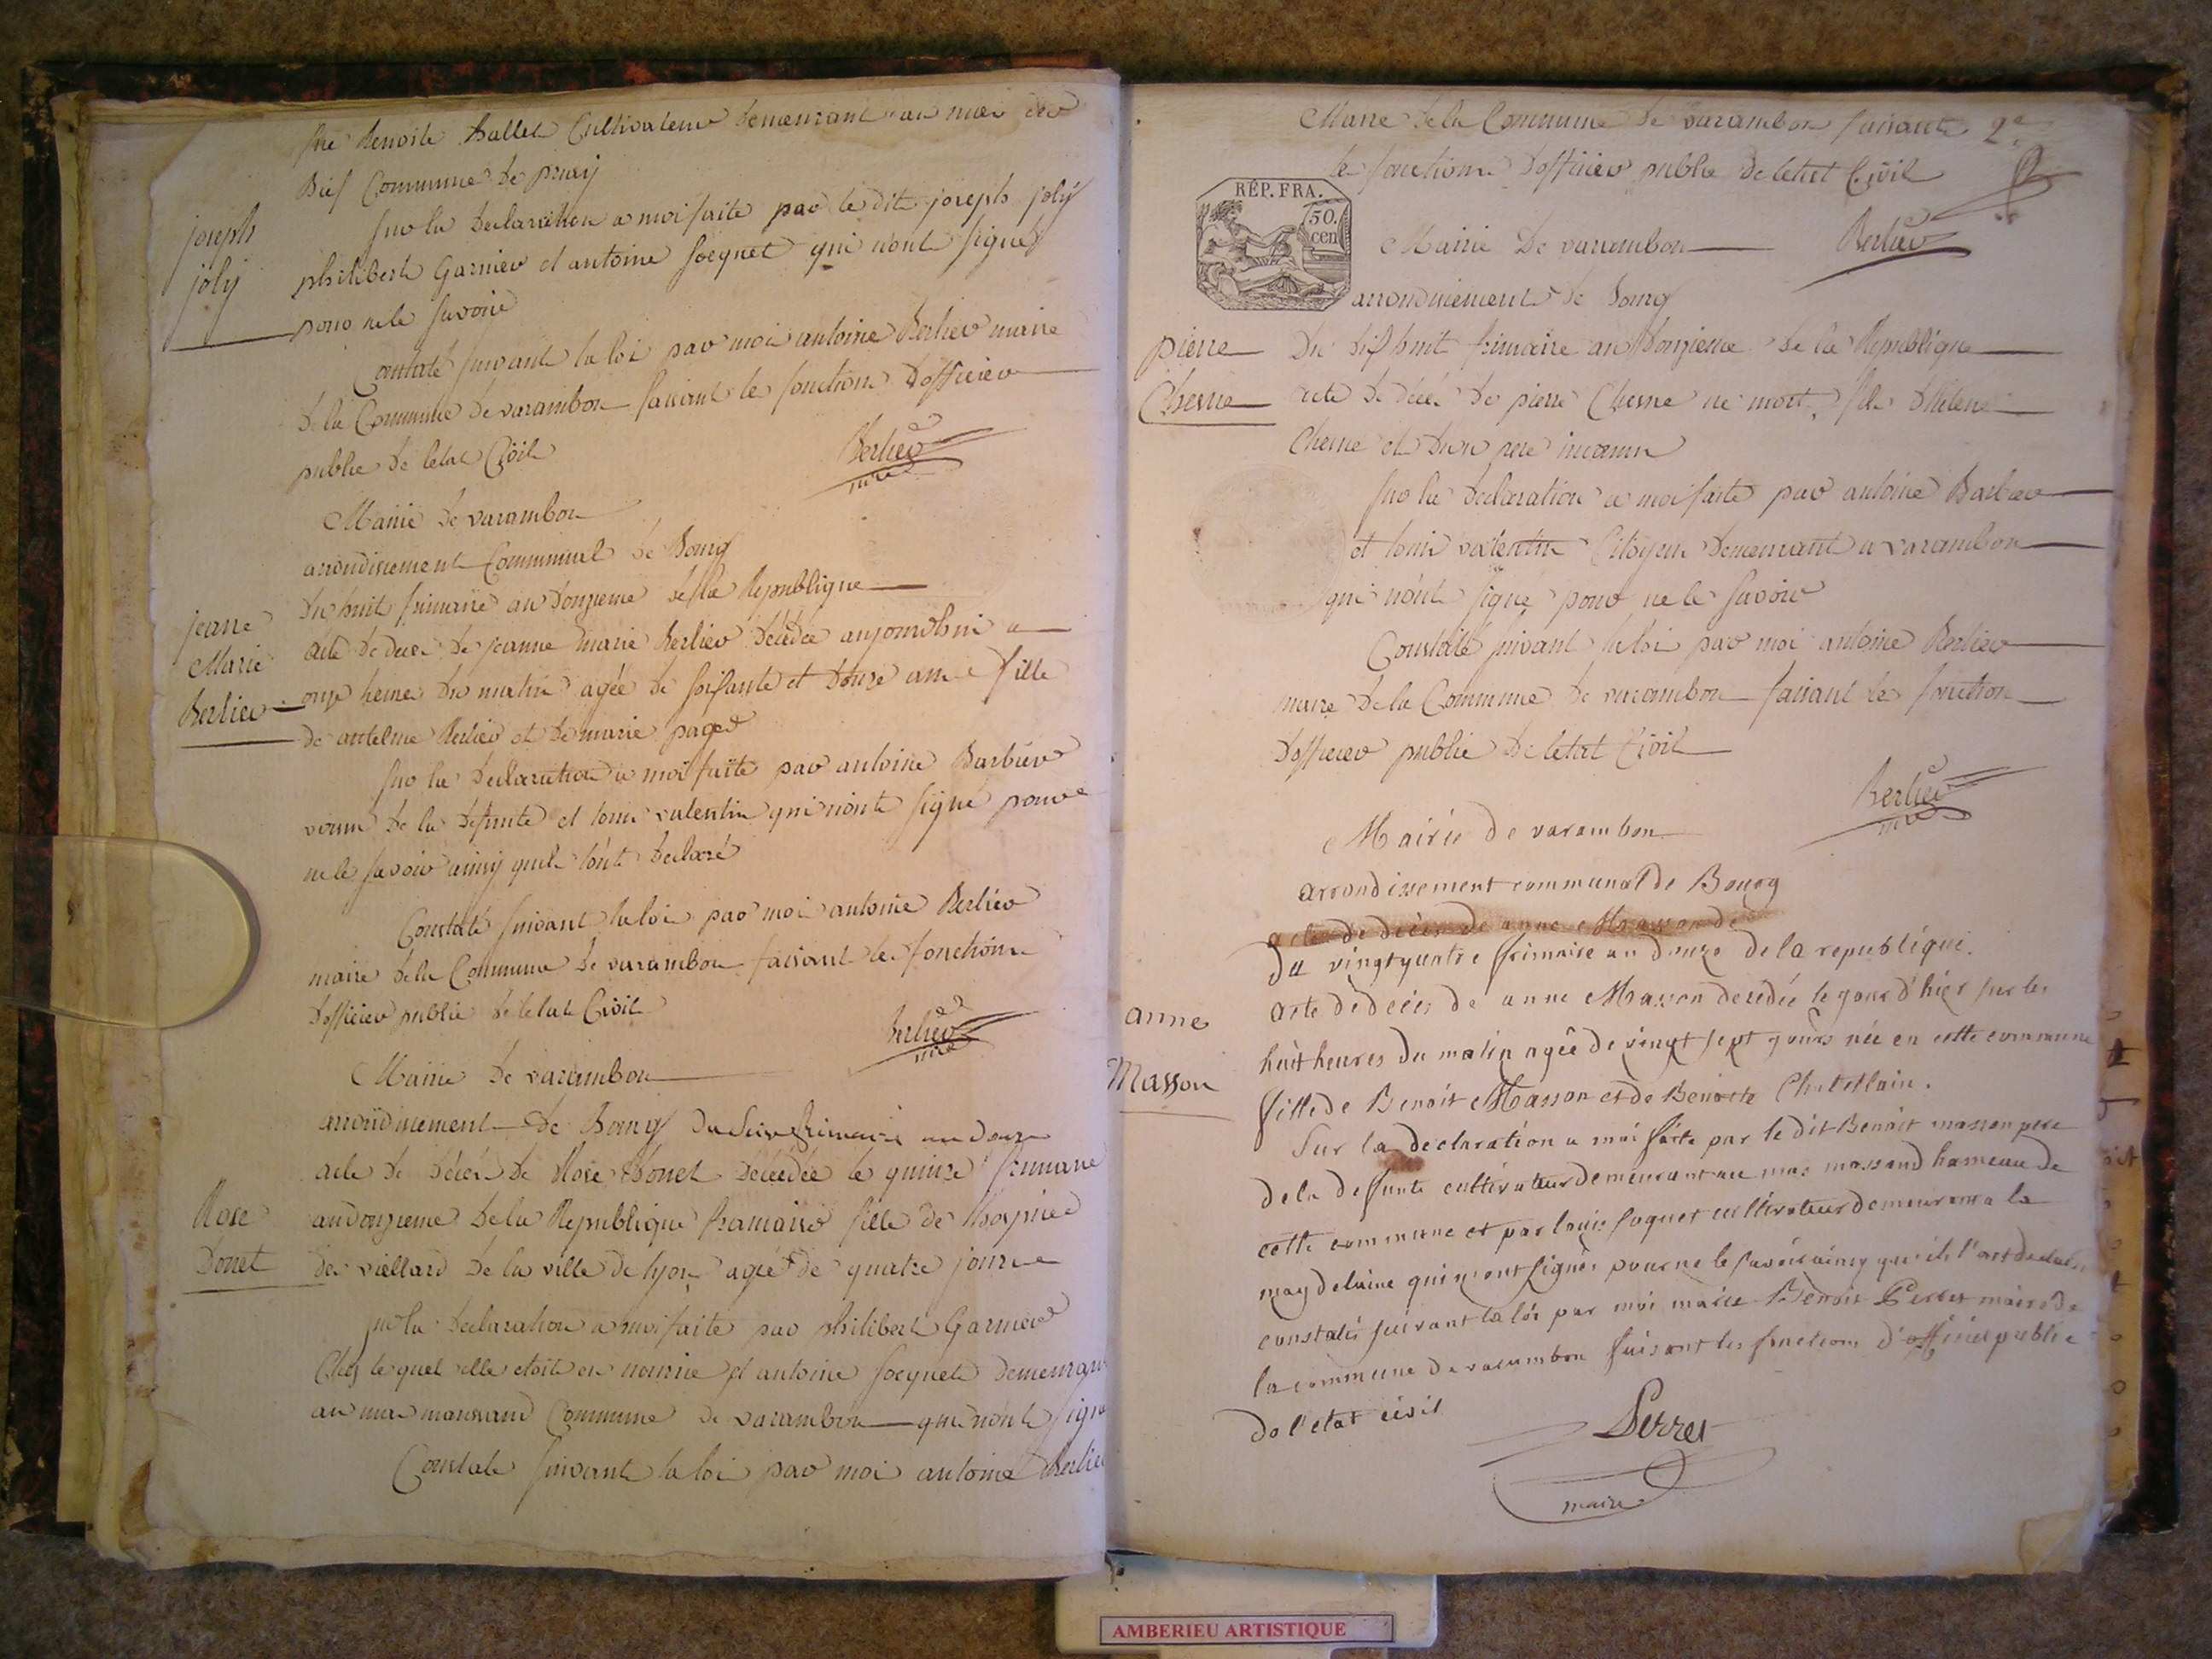 Benoite Ballet Cultivateur demeurant au mas des
Bief Commune de priay
joseph
joly
sur la declaration a moi faite par le dit joseph joly
philibert Garnier et antoine focquet qui nont signes
pour ne le savoir
Constaté suivant la loi par moi antoine Berlier maire
de la Commune de varambon faisant les fonctions dofficier
public de letat Civil
Berlier
mre
Mairie de varambon
arondissement Communal de Bourg
jeane
Marie
Berlier
du huit frimaire an douzieme de la Republique
acte de deces de jeanne marie Berlier décédée aujourdhui a
onze heures du matin agée de soisante et douze ans fille
de antelme Berlier et de marie page
sur la declaration a moi faite par antoine Barbier
voisin de la defunte et louis valentin qui nont signé pour
ne le savoir ainsy quils lont declaré
Constaté suivant la loi par moi antoine Berlier
maire de la Commune de varambon faisant les fonctions
dofficier public de letat Civil
Berlier
mre
Mairie de varambon
arondissement de Bourg du seize frimaire an douze
Rose
donet
acte de décés de Rose donet décédée le quinze frimaire
an douzieme de la Republique francaise fille de lhospice
des viellard de la ville de lyon agée de quatre jours
sur la declaration a moi faite par philibert Garnier
Chez lequel elle etoit en nourrice et antoine focquet demeurant
au mas massand Commune de varambon qui nont signé
Constaté suivant la loi par moi antoine Berlier
Maire de la Commune de varambon faisant 2e
les fonctions dofficier public de letat Civil
RÉP. FRA.
50.
cen
Berlier
Mairie de varambon
arondissement de Bourg
pierre
Chesne
du dishuit frimaire an douzieme de la Republique
acte de décés de pierre Chesne né mort, fils dhelene
Chesne et dun pere inconnu
sur la declaration a moi faite par antoine Barbier
et louis valentin Citoyens demeurant a varambon
qui nont signé pour ne le savoir
Constaté suivant la loi par moi antoine Berlier
maire de la Commune de varambon faisant les fonction
dofficier public de letat Civil
Berlier
mre
Mairie de varambon
arrondissement communal de Bourg
acte de décès de anne Masson de
du vingt quatre frimaire an douze de la republique.
anne
Masson
acte de décès de anne Masson décédée le jour d'hier sur les
huit heures du matin agée de vingt sept jours née en cette commune
fille de Benoit Masson et de Benoite Chatellain.
Sur la declaration a moi faite par le dit Benoit masson pere
de la defunte cultivateur demeurant au mas massand hameau de
cette commune et par louis foquet cultivateur demeurant a la
magdelaine qui n'ont signés pour ne le savoir ainsy qu'ils l'ont declaré
constatés suivant la loi par moi marie Benoit Perret maire de
la commune de varambon faisant les fonctions d'officier public
de l'etat civil
Perret
maire
AMBERIEU ARTISTIQUE